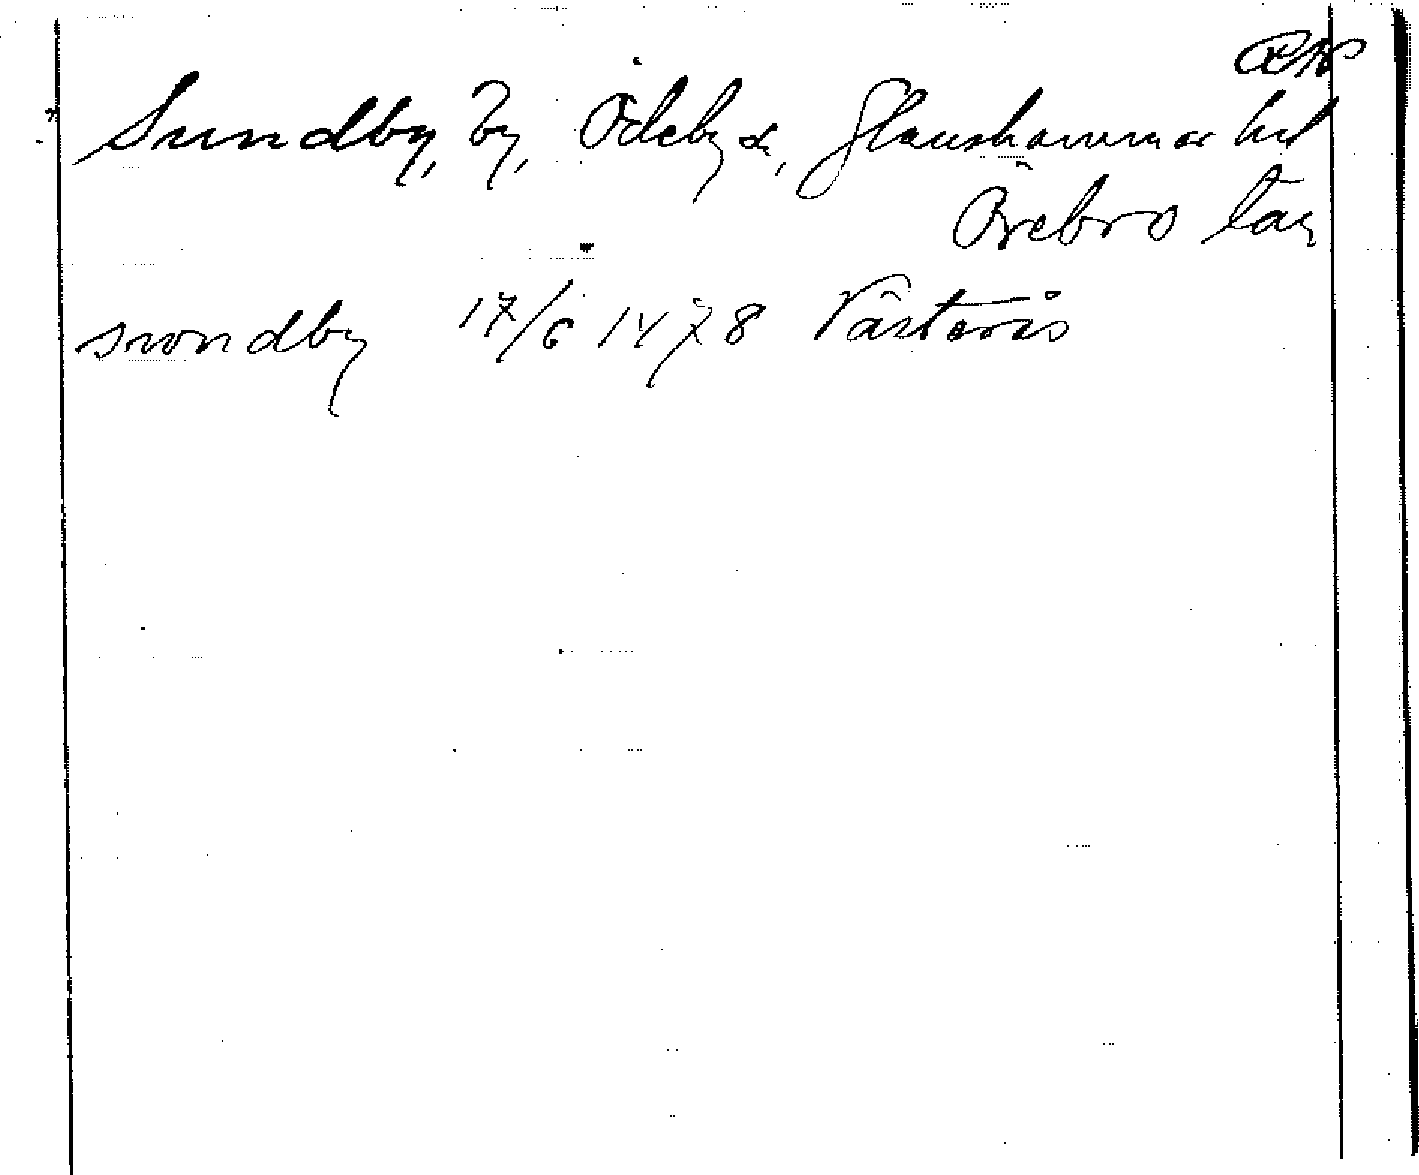 Sundby, by, Ödeby sn, Glanshammar hd
Örebro län
swndby 17/6 1478 Västerås